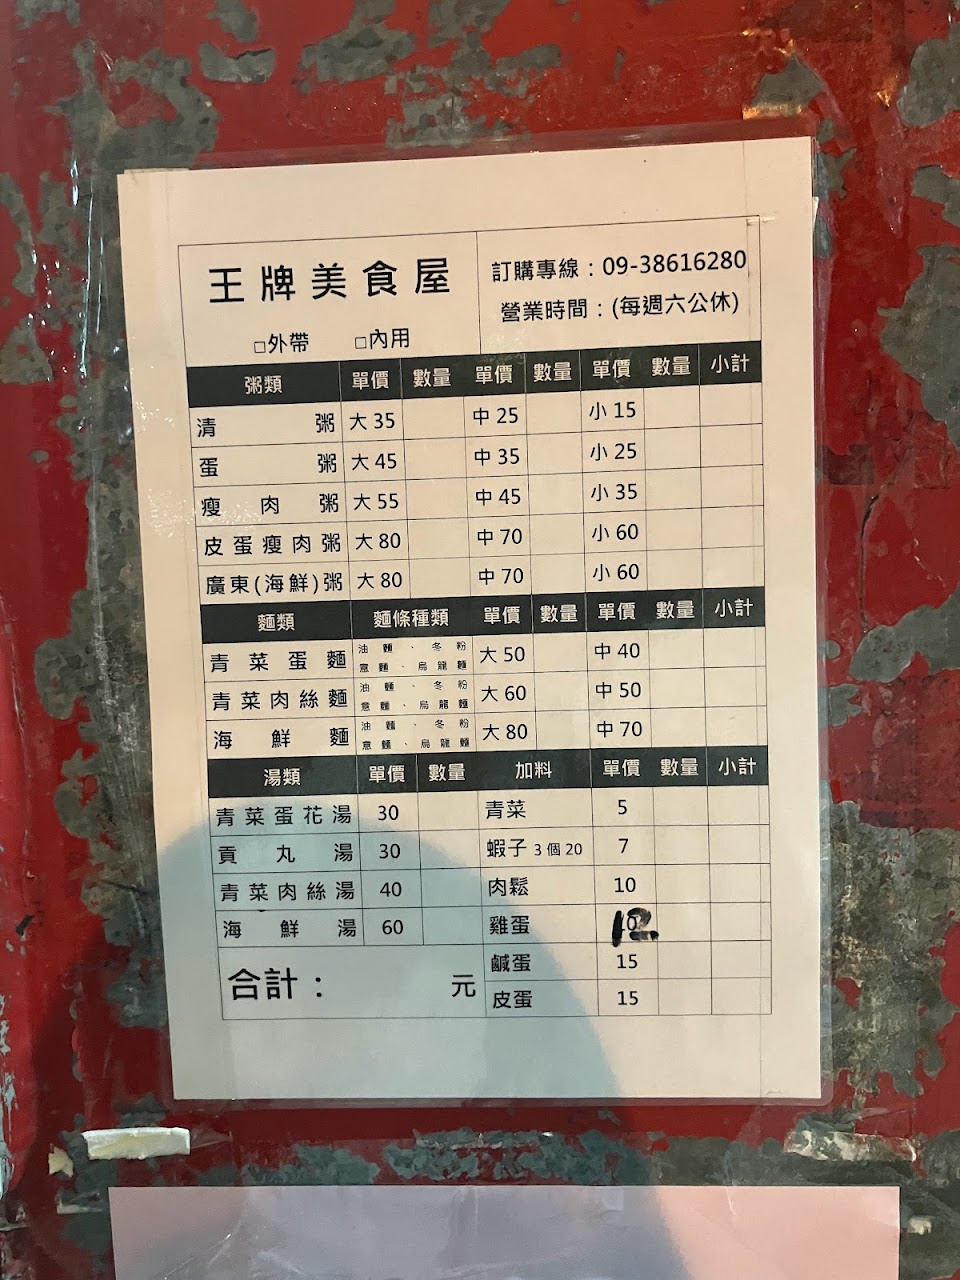 王牌美食屋
訂購專線：09-38616280
營業時間：(每週六公休)
□外帶 □內用
粥類 單價 數量 單價 數量 單價 數量 小計
清粥 大35 中25 小15
蛋粥 大45 中35 小25
瘦肉粥 大55 中45 小35
皮蛋瘦肉粥 大80 中70 小60
廣東(海鮮)粥 大80 中70 小60
麵類 麵條種類 單價 數量 單價 數量 小計
青菜蛋麵 油麵、冬粉 意麵、烏龍麵 大50 中40
青菜肉絲麵 油麵、冬粉 意麵、烏龍麵 大60 中50
海鮮麵 油麵、冬粉 意麵、烏龍麵 大80 中70
湯類 單價 數量 加料 單價 數量 小計
青菜蛋花湯 30 青菜 5
貢丸湯 30 蝦子 3個20 7
青菜肉絲湯 40 肉鬆 10
海鮮湯 60 雞蛋 12
鹹蛋 15
合計： 元 皮蛋 15